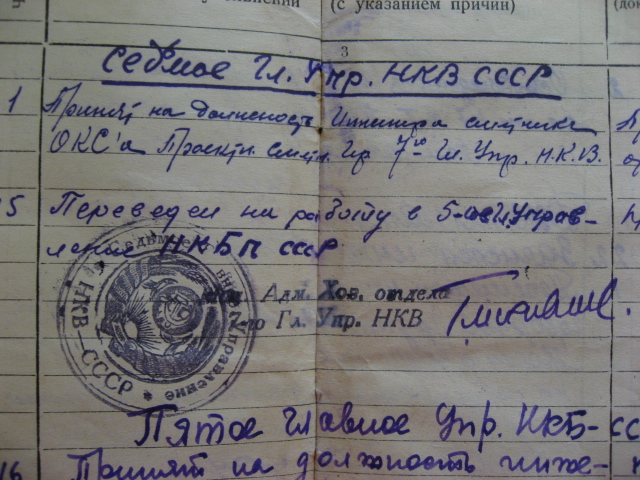 (с указанием причин)
3
Седмое Гл. Упр. НКВ СССР
1 Принят на должность Инженера сметчика
ОКС'а Проектн. Сметн. Гр 7го Гл. Упр. Н.К.В.
5 Переведен на работу в 5-ое Гл. Управ-
ление НКБП СССР
Адм. Хоз. отдела
Гл. Упр. НКВ
НКВ—СССР * Седьмое Управление *
Пятое Главное Упр. НКБ-СС
16 Принят на должность инже-